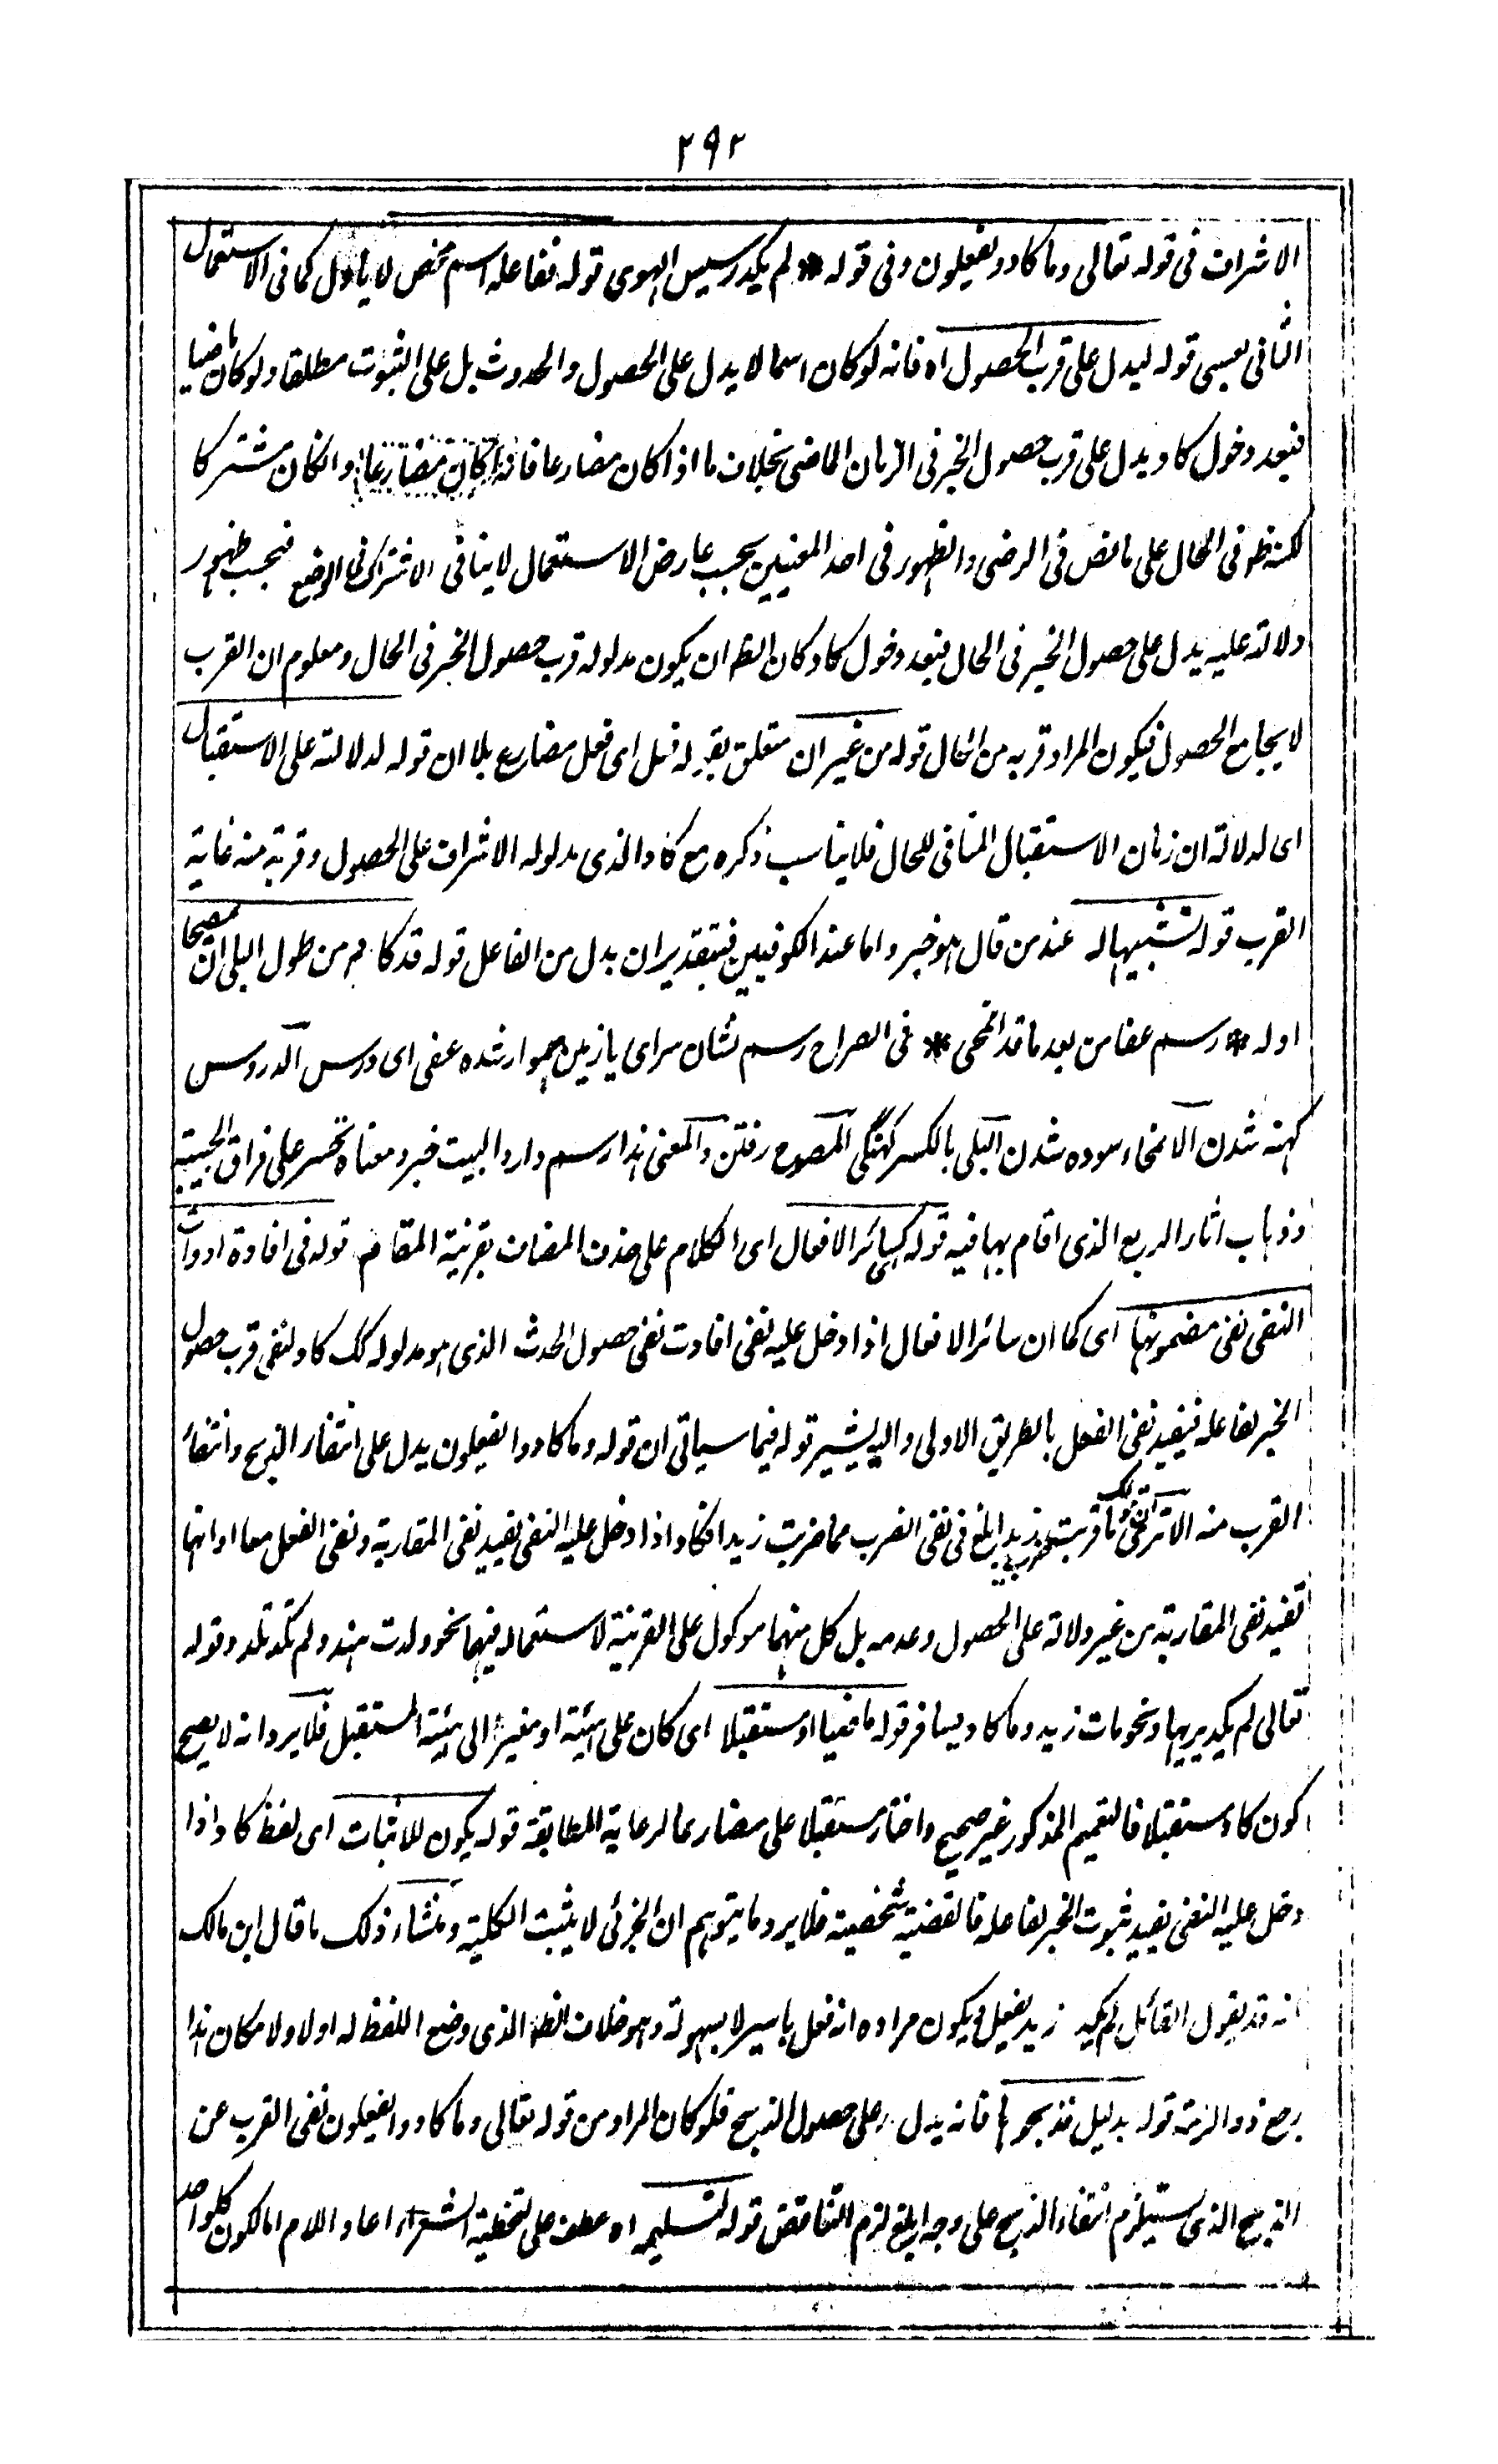 ٢٩٢
الاشراف فى قوله تعالى وما كادوا يفعلون وفى قوله * لم يكد رسيس الهوى قوله ففاعله اسم محض لا ياول كما فى الاستعمال
الثانى لعسى قوله ليدل على قرب الحصول اه فانه لو كان اسما لا يدل على الحصول والحدوث بل على الثبوت مطلقا ولو كان ماضيا
فبعد دخول كاد يدل على قرب حصول الخبر فى الزمان الماضى بخلاف ما اذا كان مضارعا فانه اذا كان مضارعا وانكان مشتركا
لكنه ظه فى الحال على ما نص فى الرضى والظهور فى احد المعنيين بحسب عارض الاستعمال لا ينافى الاشتراك فى الوضع فبحسب ظهور
دلالته عليه يدل على حصول الخبر فى الحال فبعد دخول كاد كان الظه ان يكون مدلوله قرب حصول الخبر فى الحال ومعلوم ان القرب
لا يجامع الحصول فيكون المراد قربه من الحال قوله من غير ان متعلق بقوله فعل اى فعل مضارع بلا ان قوله لدلالته على الاستقبال
اى لدلالة ان زمان الاستقبال المنافى للحال فلا يناسب ذكره مع كاد الذى مدلوله الاشراف على الحصول وقربة منه غاية
القرب قوله تشبيها له عند من قال هو خبر واما عند الكوفيين فبتقدير ان بدل من الفاعل قوله قد كاد من طول البلى ان يمصحا
اوله * رسم عفا من بعد ما قد انمحى * فى الصراح رسم نشان سراى يا زمين هموار شده عفى اى درس الدروس
كهنه شدن الانمحاء سوده شدن البلى بالكسر كهنگى المصوح رفتن والمعنى هذا رسم دار والبيت خبر ومعناه تحسر على فراق الحبيبة
وذهاب اثار الربع الذى اقام بها فيه قوله كسائر الافعال اى الكلام على حذف المضاف بقرينة المقام قوله فى افادة ادوات
النفى نفى مضمونها اى كما ان سائر الافعال اذا دخل عليه نفى افادت نفى حصول الحدث الذى هو مدلوله كك كاد لنفى قرب حصول
الخبر لفاعله فيفيد نفى الفعل بالطريق الاولى واليه يشير قوله فيما سياتى ان قوله وما كادوا يفعلون يدل على انتفاء الذبح وانتفاء
القرب منه الا ترى ان قولك ما قربت من ضرب زيد ابلغ فى نفى الضرب مما ضربت زيدا فكاد اذا دخل عليه النفى يفيد نفى المقاربة ونفى الفعل معا او انها
تفيد نفى المقاربة من غير دلالة على الحصول وعدمه بل كل منهما موكول على القرينة لاستعماله فيهما نحو ولدت هند ولم تكد تلد وقوله
تعالى لم يكد يريها ونحو مات زيد وما كاد يسافر قوله ماضيا او مستقبلا اى كان على هيئته او مغيرا الى هيئة المستقبل فلا يرد انه لا يصح
كون كاد مستقبلا فالتعميم المذكور غير صحيح واختار مستقبلا على مضارعا لرعاية المطابقة قوله يكون للاثبات اى لفظ كاد اذا
دخل عليه النفى يفيد ثبوت الخبر لفاعله فالقضية شخصية فلا يرد ما يتوهم ان الجزئى لا يثبت الكلية ومنشاء ذلك ما قال ابن مالك
انه قد يقول القائل لم يكد زيد يفعل ويكون مراده انه فعل باسير لا بسهولة وهو خلاف الظه الذى وضع اللفظ له اولا ولا مكان هذا
رجع ذو الرمة قوله بدليل فذبحوها فانه يدل على حصول الذبح فلو كان المراد من قوله تعالى وما كادوا يفعلون نفى القرب عن
الذبح الذى يستلزم انتفاء الذبح على وجه ابلغ لزم التناقض قوله لتسليمه اه عطف على لتخطية الشعراء اعاد اللام امالكون كلواحد